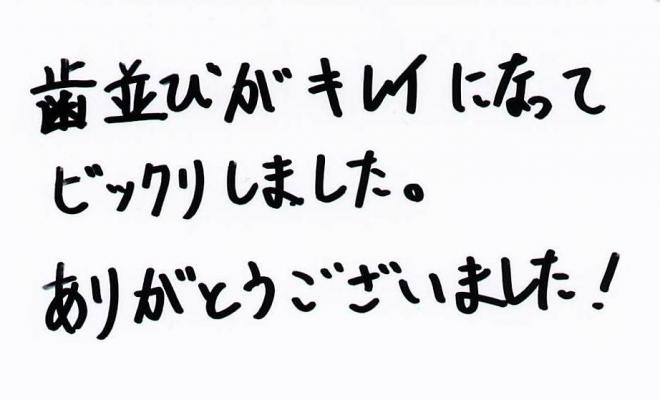 歯並びがキレイになって
ビックリしました。
ありがとうございました!